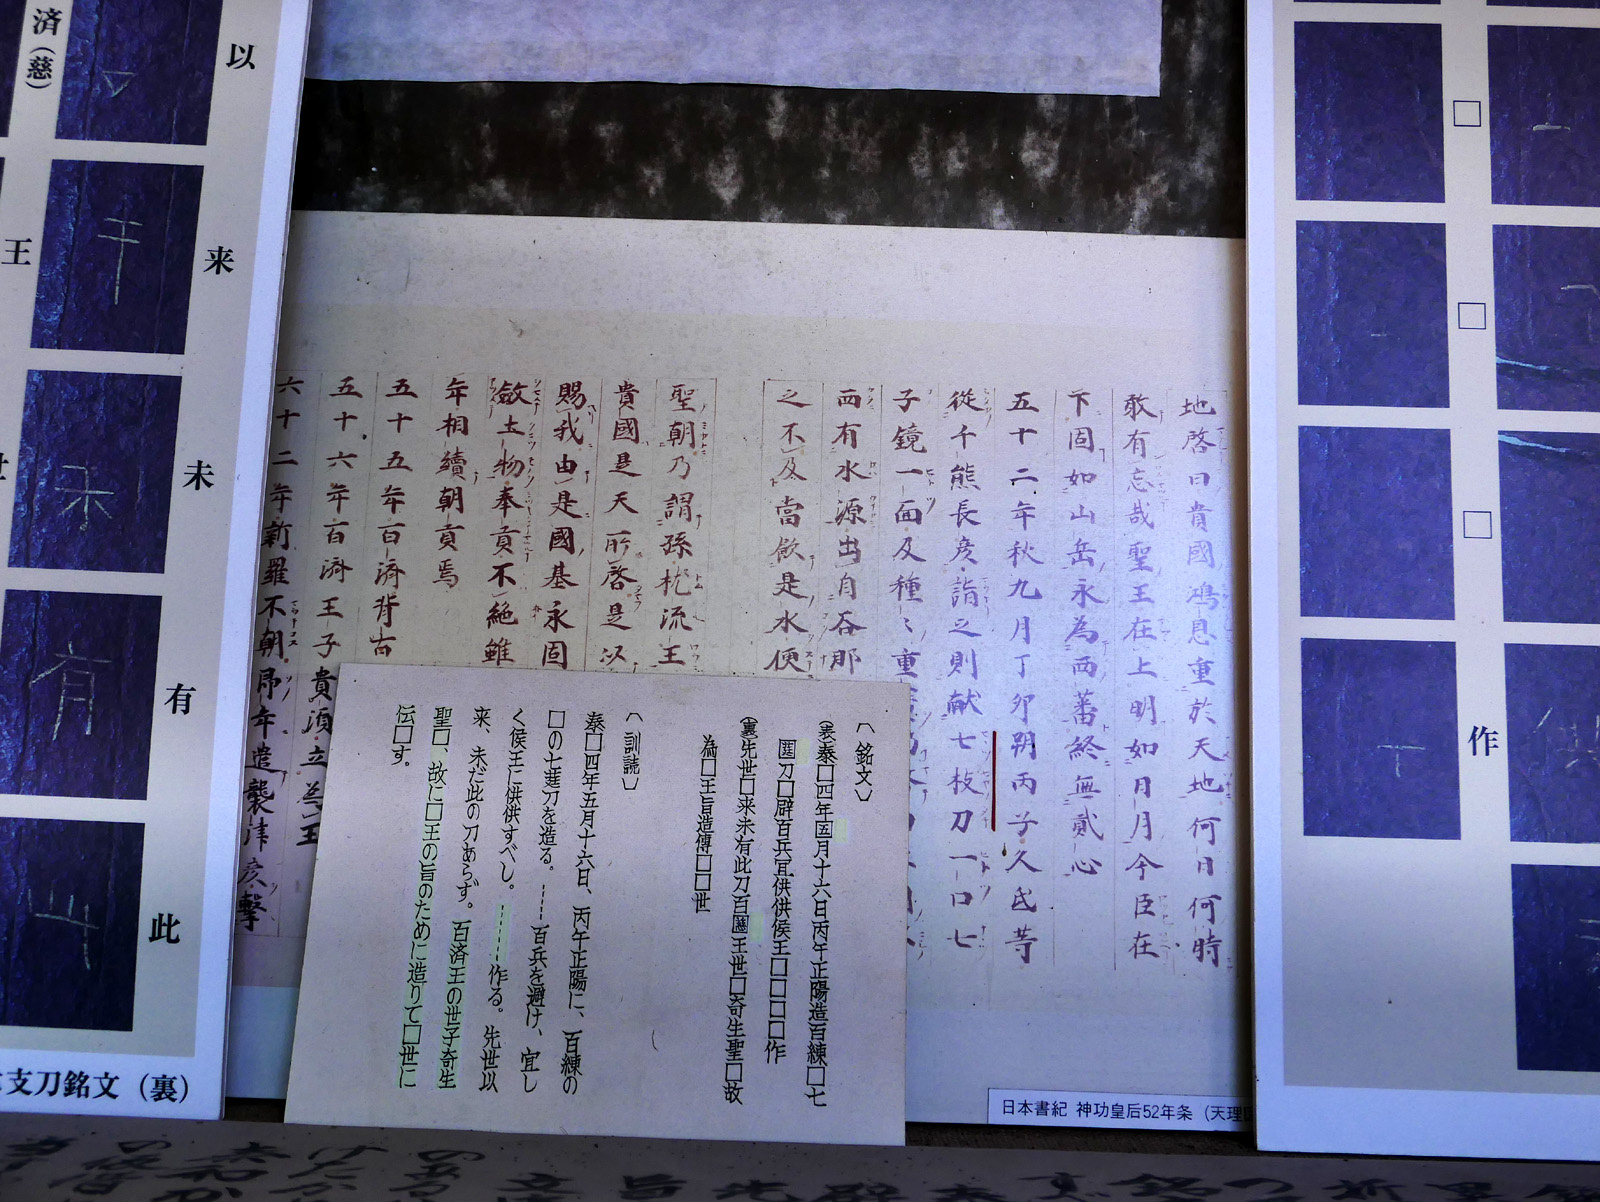 作
地啓曰貴國鴻恩重於天地何日何時
敢有忘哉聖王在上明如日月今臣在
下固如山岳永為西蕃終無貳心
五十二年秋九月丁卯朔丙子久氐等
從千熊長彦詣之則献七枝刀一口七
子鏡一面及種々重
西有水源出自谷那
之不及當飲是水便
聖朝乃謂孫枕流王
貴國是天所啓是以
賜我由是國基永固
斂土物奉貢不絶雖
年相續朝貢焉
五十五年百濟肖古
五十六年百濟王子貴須立為王
六十二年新羅不朝即年遣襲津彦撃
〔銘文〕
(表)泰□四年五月十六日丙午正陽造百練□七
刀□辟百兵宜供供侯王□□□□作
(裏)先世□来未有此刀百
王世□奇生聖□故
為□王旨造傳□□世
〔訓読〕
泰□四年五月十六日、丙午正陽に、百練の
□の七
刀を造る。----百兵を避け、宜し
く侯王に供供すべし。-----作る。先世以
来、未だ此の刀あらず。百済王の世子奇生
聖□、故に□王の旨のために造りて□世に
伝□す。
日本書紀 神功皇后52年条（天理
以
来
未
有
此
済（慈）
王
世
支刀銘文（裏）